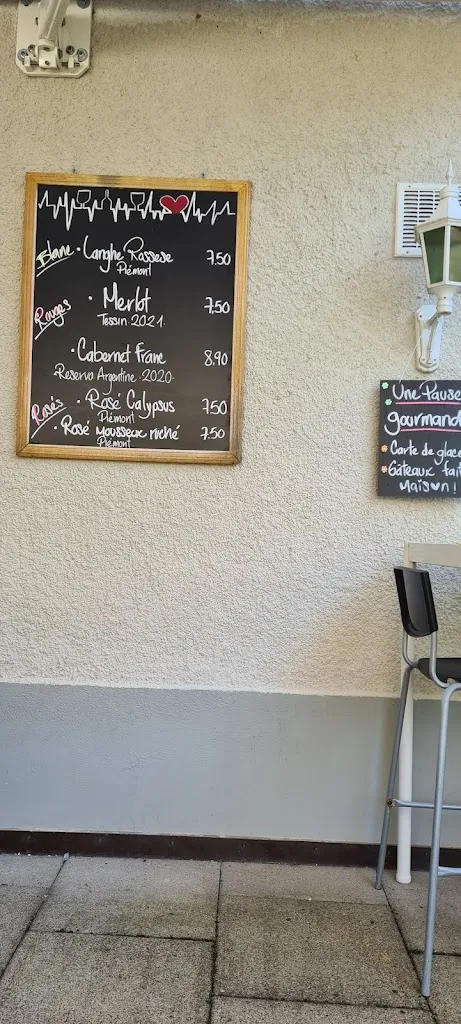 Blanc
• Langhe Rossese 7.50
Piémont
Rouges
• Merlot 7.50
Tessin 2021.
• Cabernet Franc 8.90
Reserva Argentine 2020.
Rosés
• Rosé Calypsus 7.50
Piémont
• Rosé mousseux ruché 7.50
Piémont
Une Pause
gourmand
Carte de glace
Gâteaux fait
Maison!